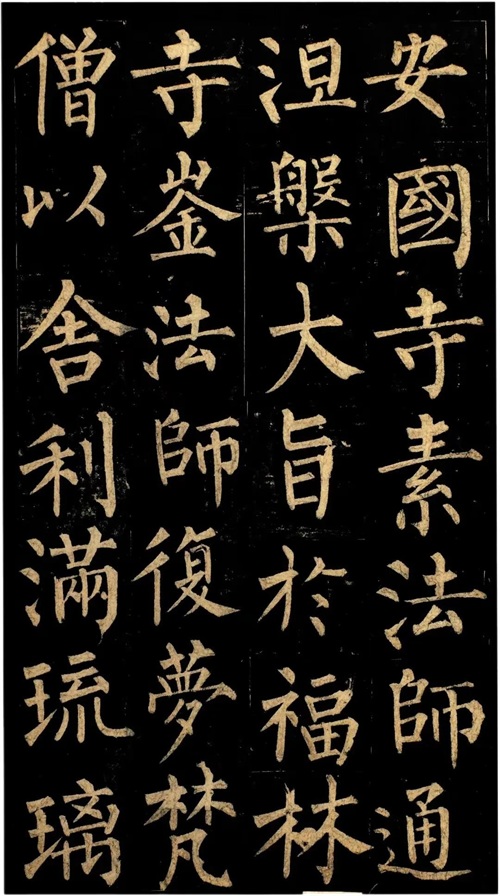 安國寺素法師通
涅槃大旨於福林
寺崟法師復夢梵
僧以舍利滿琉璃